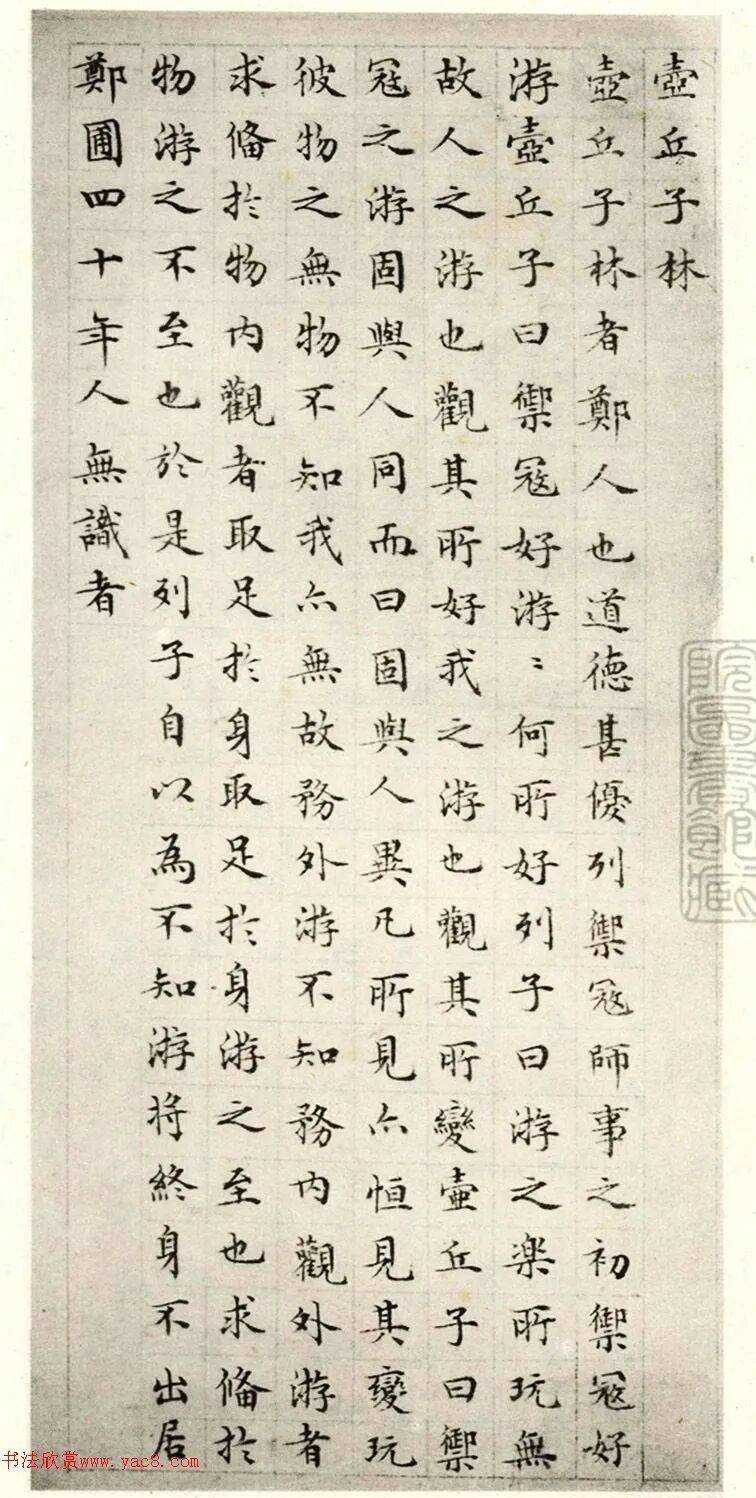 壺丘子林
壺丘子林者鄭人也道德甚優列禦冦師事之初禦冦好
游壺丘子曰禦冦好游〻何所好列子曰游之楽所玩無
故人之游也觀其所好我之游也觀其所變壺丘子曰禦
冦之游固與人同而曰固與人異凡所見亦恒見其變玩
彼物之無物不知我亦無故務外游不知務内觀外游者
求俻扵物内觀者取足扵身取足扵身游之至也求俻扵
物游之不至也於是列子自以為不知游将終身不出居
鄭圃四十年人無識者
书法欣赏www.yac8.com